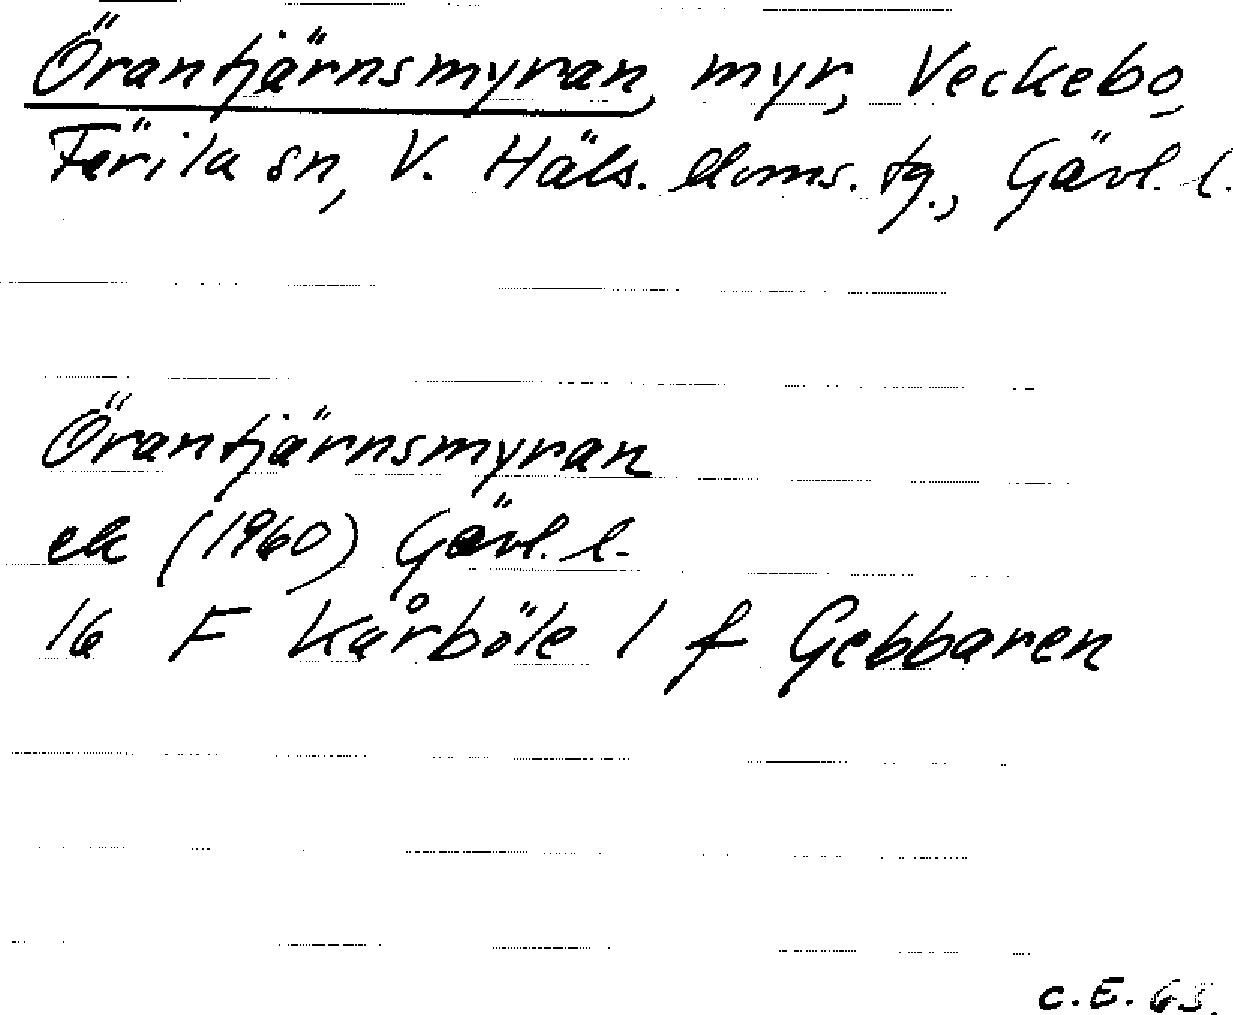 Örantjärnsmyran, myr, Veckebo,
Färila sn, V. Häls. doms. tg., Gävl. l.
Örantjärnsmyran
ek (1960) Gävl. l.
16 F Kårböle l f Gebbaren
C.E. 65.